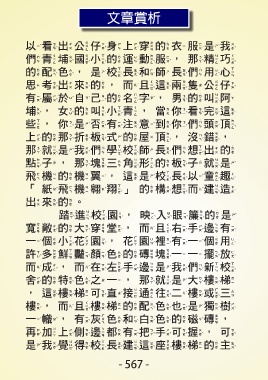 文章賞析
以看出公仔身上穿的衣服是我
們青埔國小的運動服，那精巧
的配色，是校長和師長們用心
思考出來的，而且這兩隻公仔
有屬於自己的名字，男的叫阿
埔，女的叫小青，當你看完這
些，你是否有注意到你們頭頂
上的那折板式的屋頂，沒錯，
那就是我們學校師長們想出的
點子，那塊三角形的板子就是
飛機的機翼，這是校長以童趣
「紙飛機翱翔」的構想而建造
出來的。
踏進校園，映入眼簾的是
寬敞的大穿堂，而且右手邊有
一個小花園，花園裡有一個用
許多鮮豔顏色的磚塊一一擺放
而成，而在左手邊是我們新校
舍的特色之一，那就是大樓梯
，這樓梯可直接通往二樓或三
樓，而且樓梯的配色也是獨樹
一幟，有灰色和白色的磁磚，
再加上側邊都有把手可握，可
是我覺得校長建這座樓梯的主
- 567 -